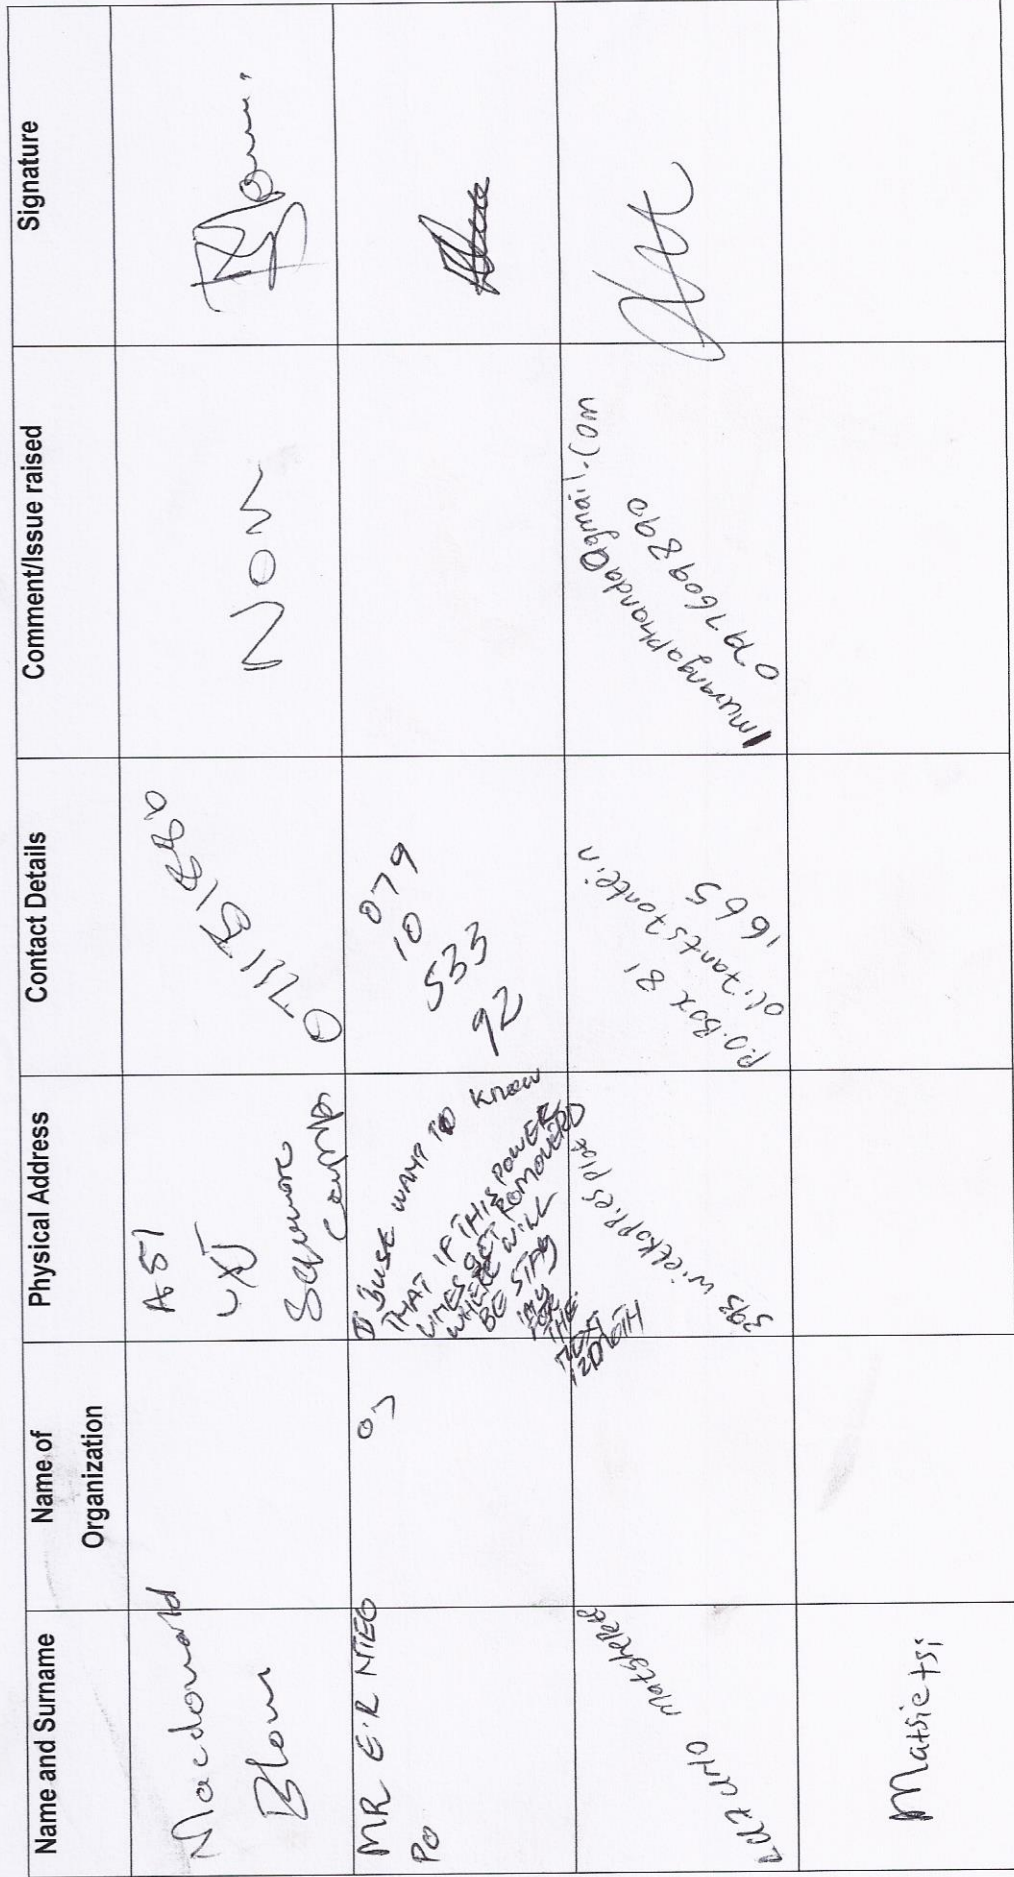 Name and Surname
Name of
Organization
Physical Address
Contact Details
Comment/Issue raised
Signature
Macdonald
Blom
A51
Sycamore
NON
MR E.R NTEO
PO
I JUSE WANT TO KNOW
THAT IF THIS POWER
LINES GET ROMOVERD
WHERE WILL
BE STAY
FOR
THE
NEXT
12MOTH
079
10
533
92
393 wielkoppies plot
P.O.Box 81
olifantsfontein
1665
murangaphanda@gmail.com
0797609890
Matsietsi